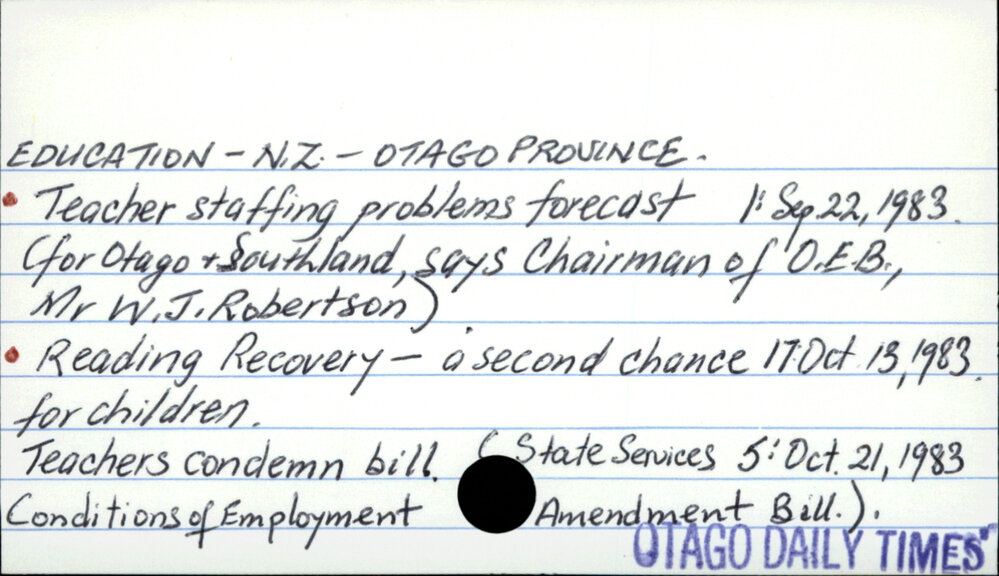 EDUCATION - N.Z. - OTAGO PROVINCE.
• Teacher staffing problems forecast 1: Sep. 22, 1983.
(for Otago + Southland, says Chairman of O.E.B.,
Mr W.J. Robertson)
• Reading Recovery - a second chance 17: Oct. 13, 1983.
for children.
Teachers condemn bill. (State Services 5: Oct. 21, 1983
Conditions of Employment Amendment Bill.).
OTAGO DAILY TIMES